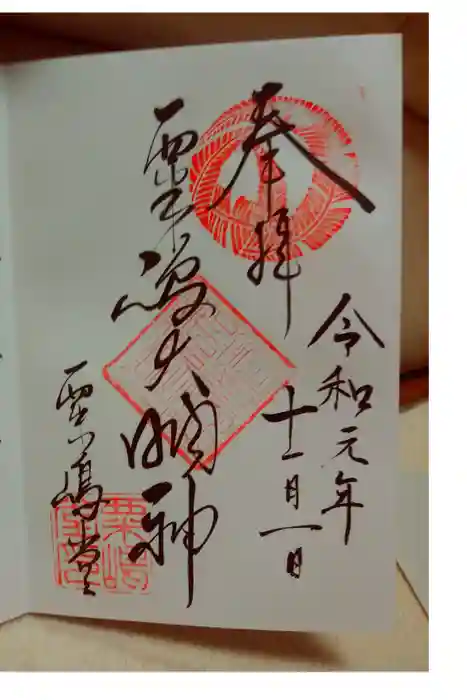 令和元年
奉拝
十一月一日
粟嶋大明神
粟嶋堂